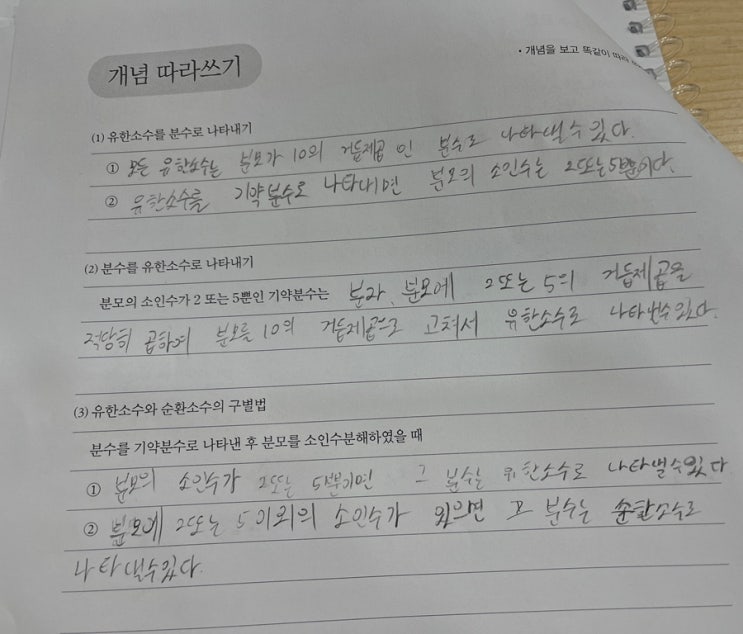 개념 따라쓰기
• 개념을 보고 똑같이 따라
(1) 유한소수를 분수로 나타내기
① 모든 유한소수는 분모가 10의 거듭제곱인 분수로 나타낼수있다.
② 유한소수를 기약분수로 나타내면 분모의 소인수는 2또는5뿐이다.
(2) 분수를 유한소수로 나타내기
분모의 소인수가 2 또는 5뿐인 기약분수는 분자, 분모에 2또는 5의 거듭제곱을
적당히 곱하여 분모를 10의 거듭제곱으로 고쳐서 유한소수로 나타낼수있다.
(3) 유한소수와 순환소수의 구별법
분수를 기약분수로 나타낸 후 분모를 소인수분해하였을 때
① 분모의 소인수가 2또는 5뿐이면 그 분수는 유한소수로 나타낼수있다
② 분모에 2또는 5이외의 소인수가 있으면 그 분수는 순환소수로
나타낼수있다.